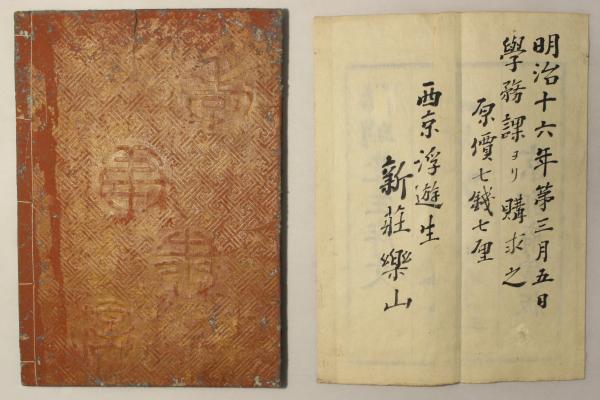 明治十六年第三月五日
學務課ヨリ購求之
原價七錢七厘
西京浮遊生
新莊樂山